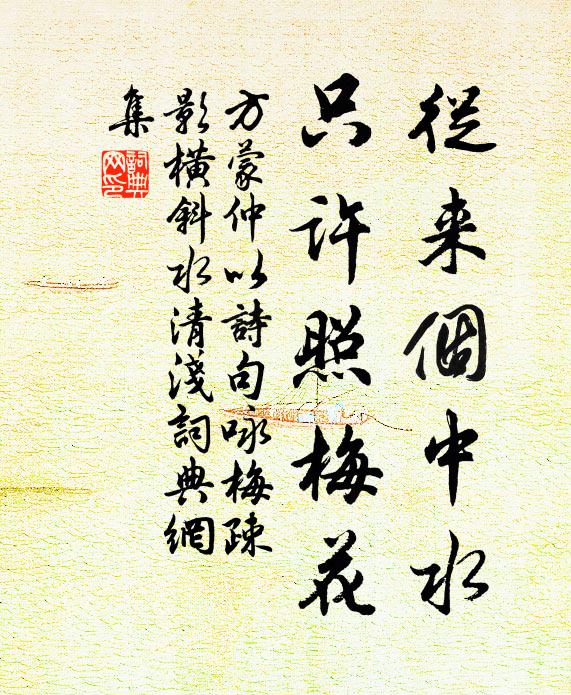 從来個中水
只許照梅花
方蒙仲以詩句咏梅疎
影橫斜水清淺詞典網
集
詞典
网印